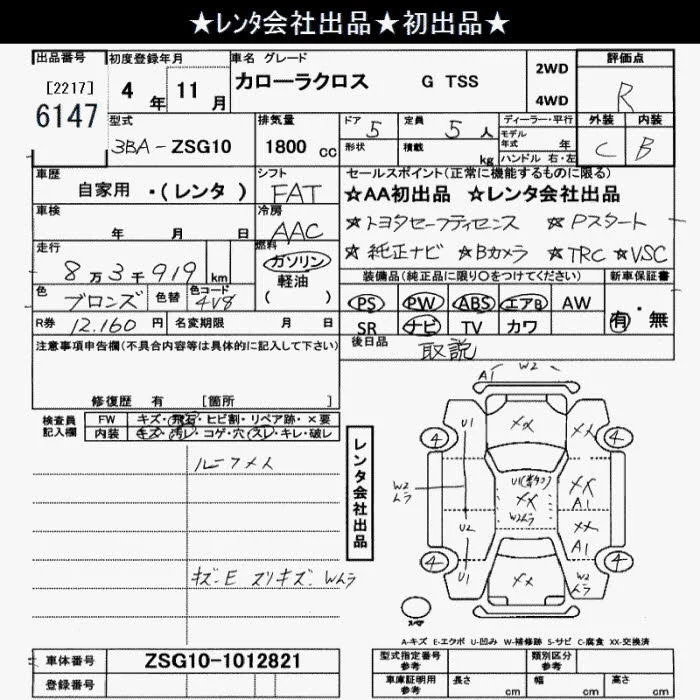 ★レンタ会社出品★初出品★
出品番号 初度登録年月 車名 グレード 2WD 評価点
[2217] 4年 11月 カローラクロス G TSS 4WD R
6147
型式 排気量 ドア 5 定員 5人 ディーラー・平行 外装 内装
3BA-ZSG10 1800cc 形状 積載 kg モデル年式 年 C B
ハンドル 右・左
車歴 シフト セールスポイント(正常に機能するものに限る)
自家用 ・(レンタ) FAT ☆AA初出品 ☆レンタ会社出品
車検 冷房 ☆トヨタセーフティセンス ☆Pスタート
年 月 日 AAC ☆純正ナビ ☆Bカメラ ☆TRC ☆VSC
走行 燃料 装備品(純正品に限り○をつけてください) 新車保証書
8万3千919km ガソリン
軽油
( )
色 ブロンズ 色替 色コード 4V8 PS PW ABS エアB AW 有・無
R券 12.160円 名変期限 月 日 SR ナビ TV カワ
注意事項申告欄(不具合内容等は具体的に記入して下さい) 後日品 取説
修復歴 有 [箇所 ]
検査員記入欄 FW キズ・飛石・ヒビ割・リペア跡・×要
内装 キズ・汚レ・コゲ・穴・スレ・キレ・破レ
レンタ会社出品
キズ・E スリキズ・Wムラ
A1 W2
U1 XX XX
4 4
U1 XX
W2ムラ XX W2ムラ A1
U2 XX
A1
4 4
U1 XX W2ムラ
スペア
A-キズ E-エクボ U-凹み W-補修跡 S-サビ C-腐食 XX-交換済
車体番号 ZSG10-1012821 型式指定番号参考 類別区分参考
登録番号 車庫証明用参考 長さ cm 幅 cm 高さ cm